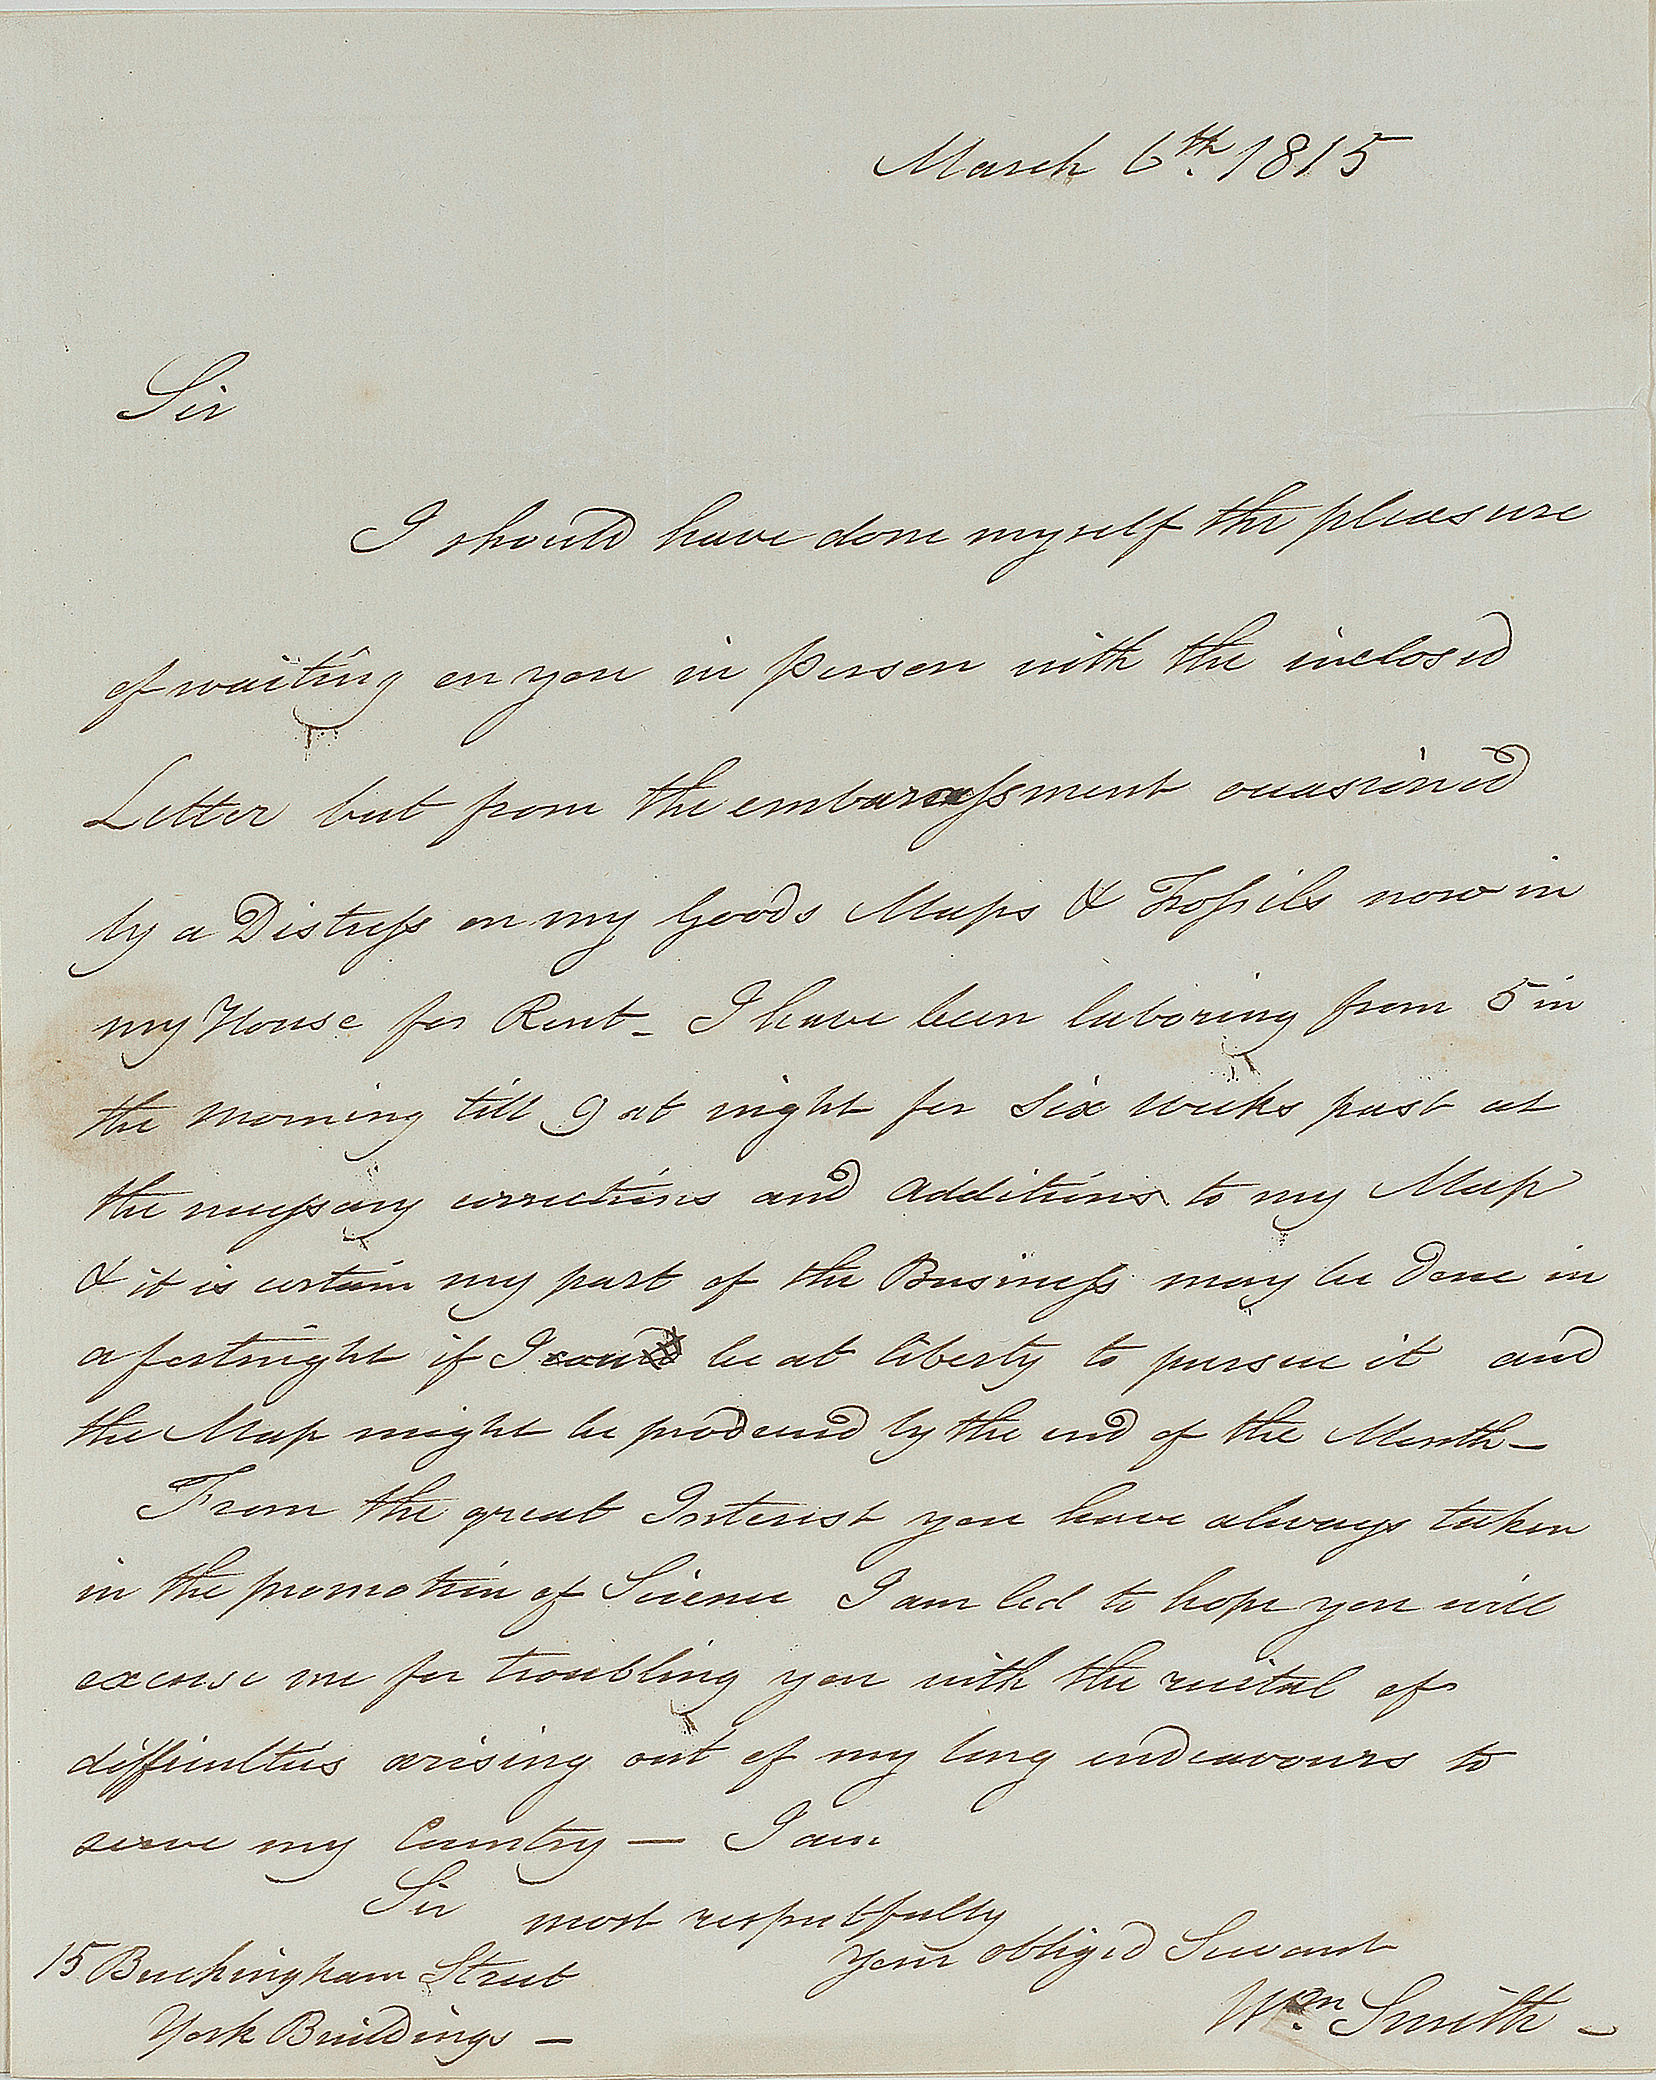 March 6th. 1815
Sir
I should have done myself the pleasure
of waiting on you in person with the inclosed
Letter but from the embarrassment occasioned
by a Distress on my Goods Maps & Fossils now in
my House for Rent - I have been laboring from 5 in
the morning till 9 at night for six weeks past at
the necessary corrections and additions to my Map
& it is certain my part of the Business may be done in
a fortnight if I could be at liberty to pursue it and
the Map might be produced by the end of the Month -
From the great Interest you have always taken
in the promotion of Science I am led to hope you will
excuse me for troubling you with the recital of
difficulties arising out of my long endeavours to
serve my Country — I am
Sir most respectfully
your obliged Servant
15 Buckingham Street
Wm. Smith -
York Buildings —